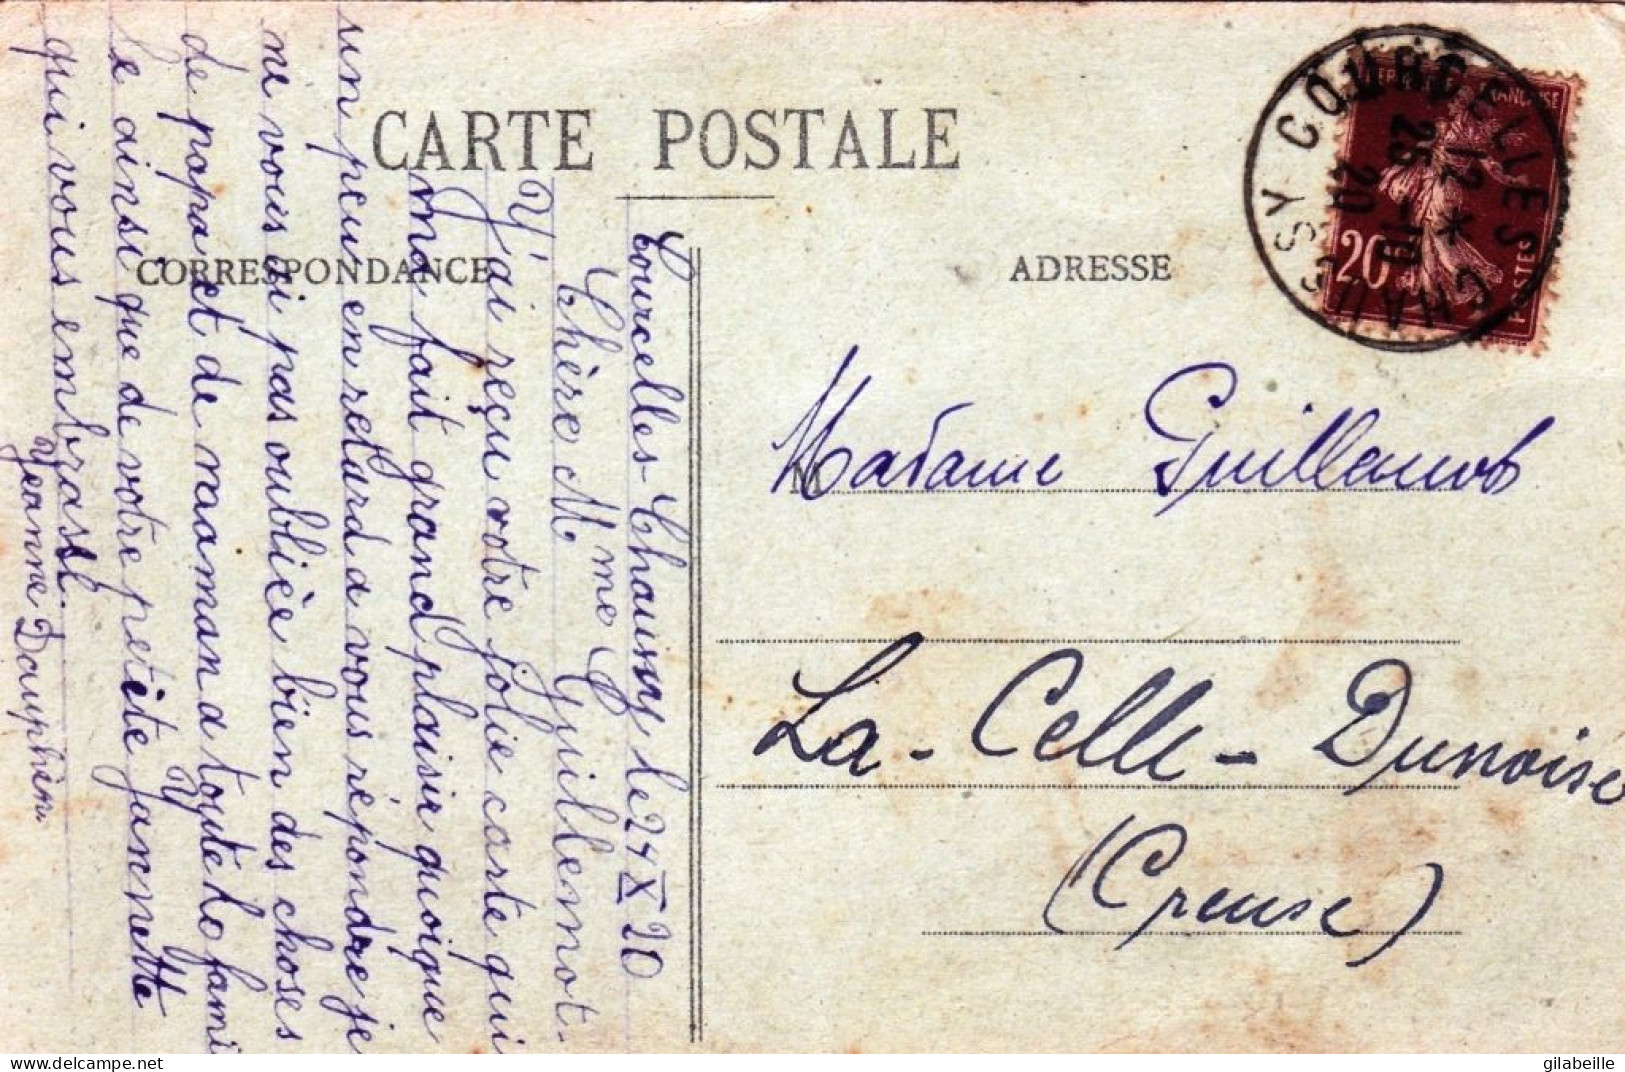 CARTE POSTALE
CORRESPONDANCE
ADRESSE
Courcelles-Chaussy le 24 X 20
Chère Mme Guillemot.
J'ai reçu votre jolie carte qui
m'a fait grand plaisir quoique
un peu en retard a vous répondre je
ne vous ai pas oubliée bien des choses
de papa et de maman a toute la fami
le ainsi que de votre petite Jannette
qui vous embrasse.
Jeanne Dauphin
M
Madame Guillemot
La-Celle-Dunoise
(Creuse)
COURCELLES CHAUSSY
12 *
25 -10
20
REPUBLIQUE FRANÇAISE
20
POSTES
gilabeille